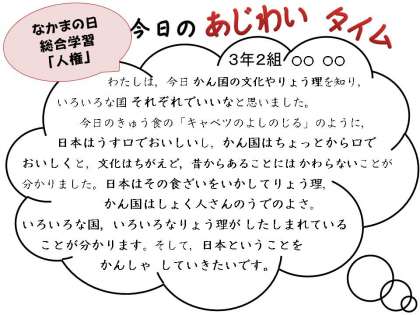 なかまの日
総合学習
「人権」
今日の あじわい タイム
3年2組 ○○ ○○
わたしは，今日 かん国の文化やりょう理を知り，
いろいろな国 それぞれでいいなと思いました。
今日のきゅう食の「キャベツのよしのじる」のように，
日本はうす口でおいしいし，かん国はちょっとから口で
おいしくと，文化はちがえど，昔からあることには かわらないことが
分かりました。日本はその食ざいをいかしてりょう理，
かん国はしょく人さんのうでのよさ。
いろいろな国，いろいろなりょう理が したしまれている
ことが分かります。そして，日本ということを
かんしゃ していきたいです。